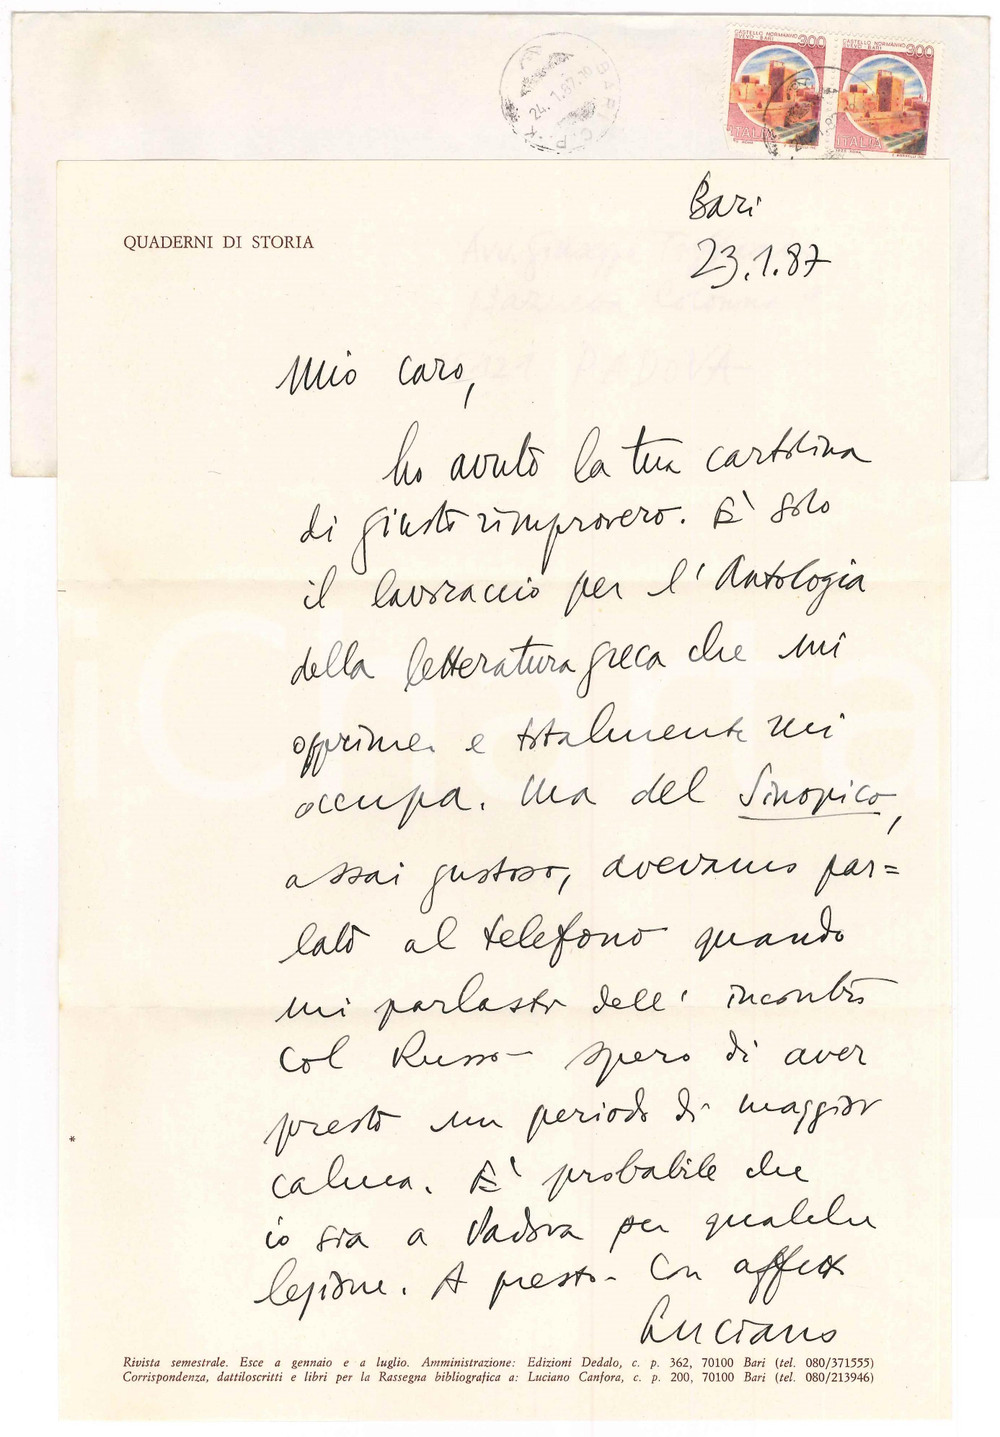 CASTELLO NORMANNO
SVEVO - BARI
300
ITALIA
CASTELLO NORMANNO
SVEVO - BARI
300
ITALIA
BARI C.P.
24.1.87
QUADERNI DI STORIA
Bari
23.1.87
PADOVA
Mio caro,
ho avuto la tua cartolina
di giusto rimprovero. È solo
il lavoraccio per l'Antologia
della letteratura greca che mi
opprime e totalmente mi
occupa. Ma del Sinopico,
assai gustoso, avevamo par=
lato al telefono quando
mi parlasti dell'incontro
col Russo - spero di aver
presto un periodo di maggior
calma. È probabile che
io sia a Padova per qualche
lezione. A presto. Con affetto
Luciano
*
Rivista semestrale. Esce a gennaio e a luglio. Amministrazione: Edizioni Dedalo, c. p. 362, 70100 Bari (tel. 080/371555)
Corrispondenza, dattiloscritti e libri per la Rassegna bibliografica a: Luciano Canfora, c. p. 200, 70100 Bari (tel. 080/213946)